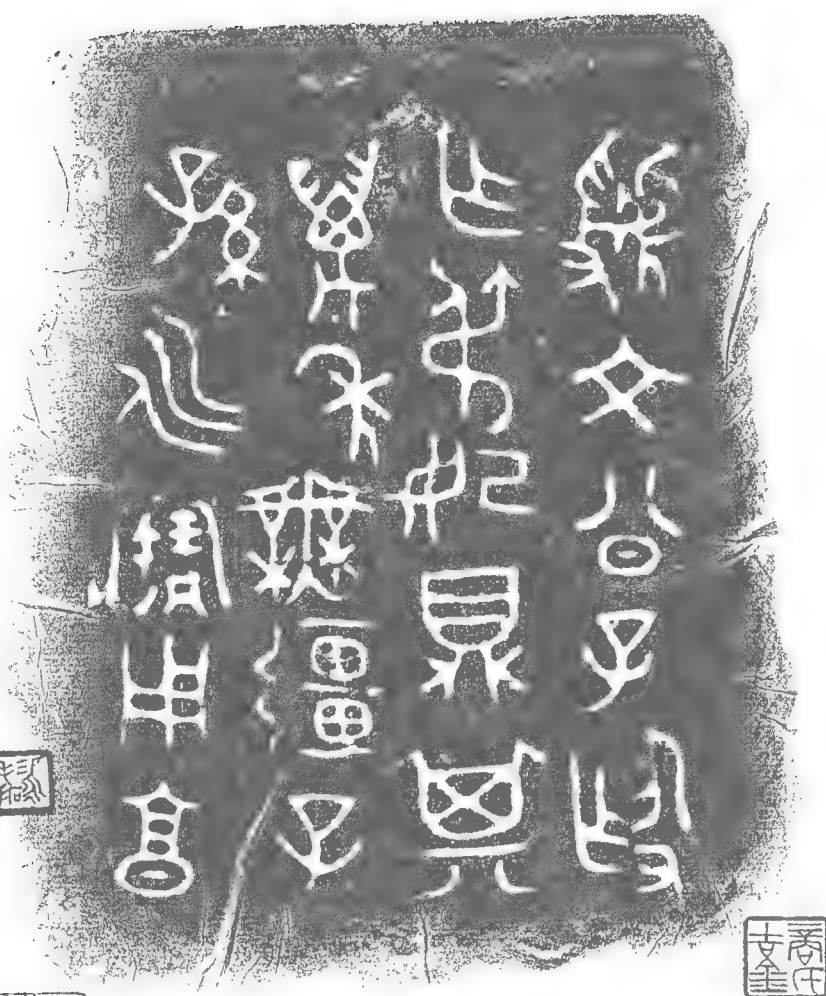 虢文公子
作叔妃鼎其
萬年無疆子
孫永寶用享